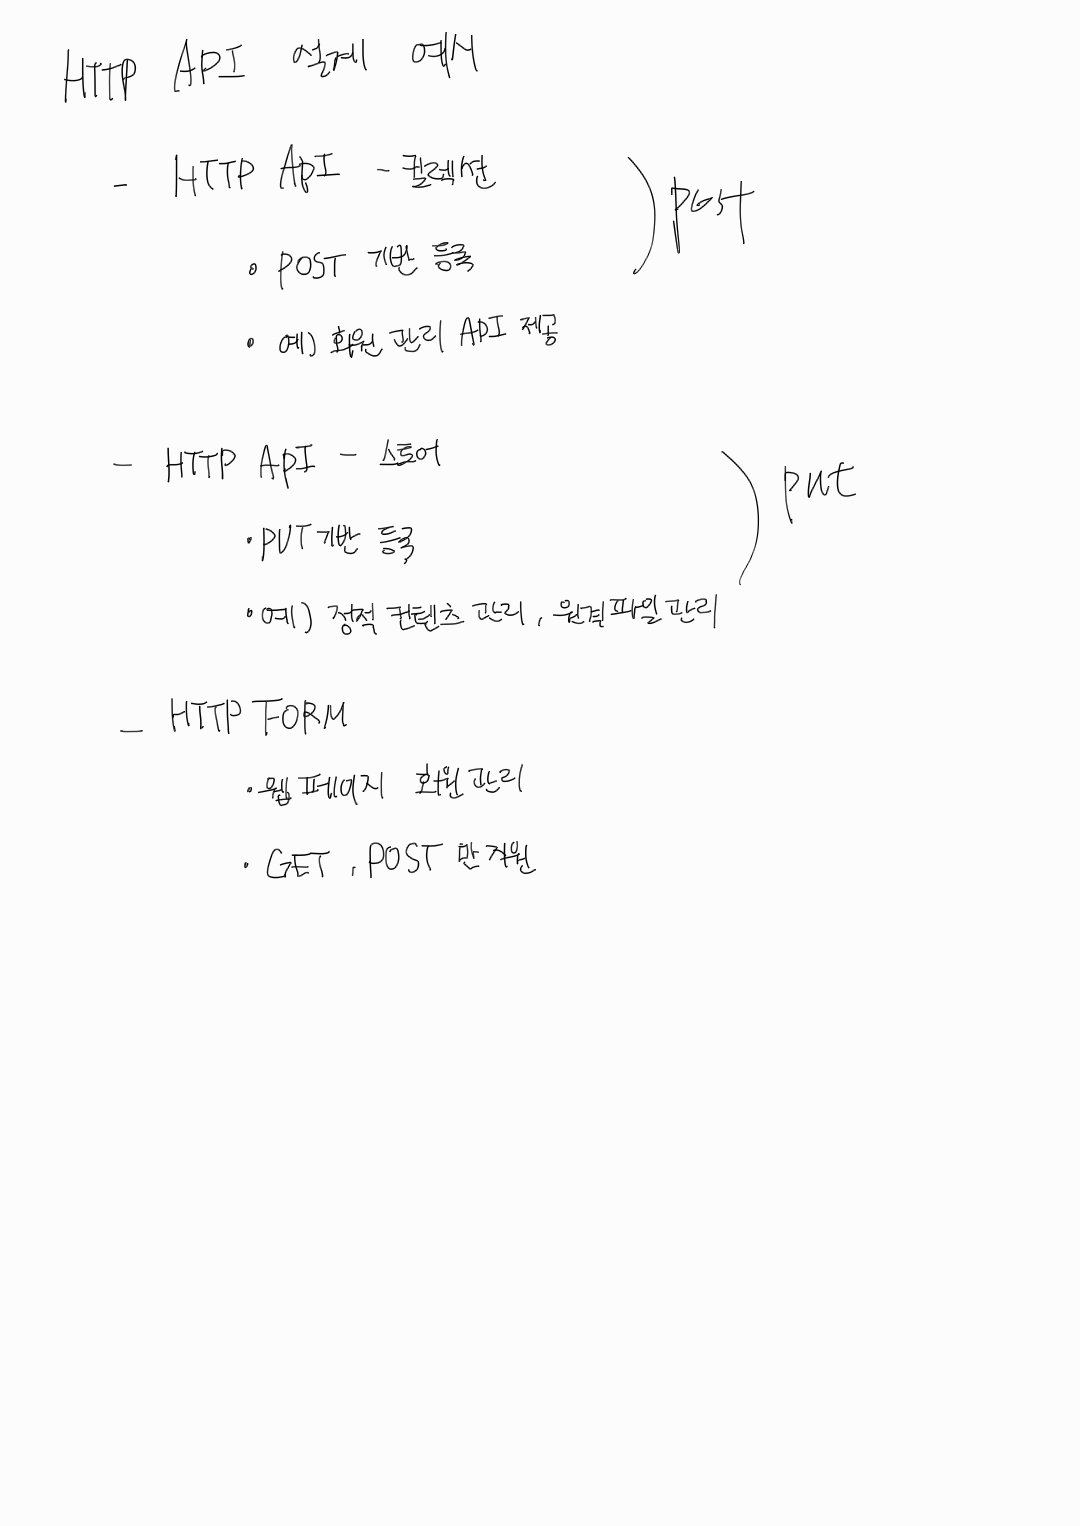 HTTP API 설계 예시
- HTTP API - 컬렉션
• POST 기반 등록
• 예) 회원 관리 API 제공
) post
- HTTP API - 스토어
• PUT 기반 등록
• 예) 정적 컨텐츠 관리, 원격 파일 관리
) put
- HTTP FORM
• 웹 페이지 회원 관리
• GET, POST 만 지원